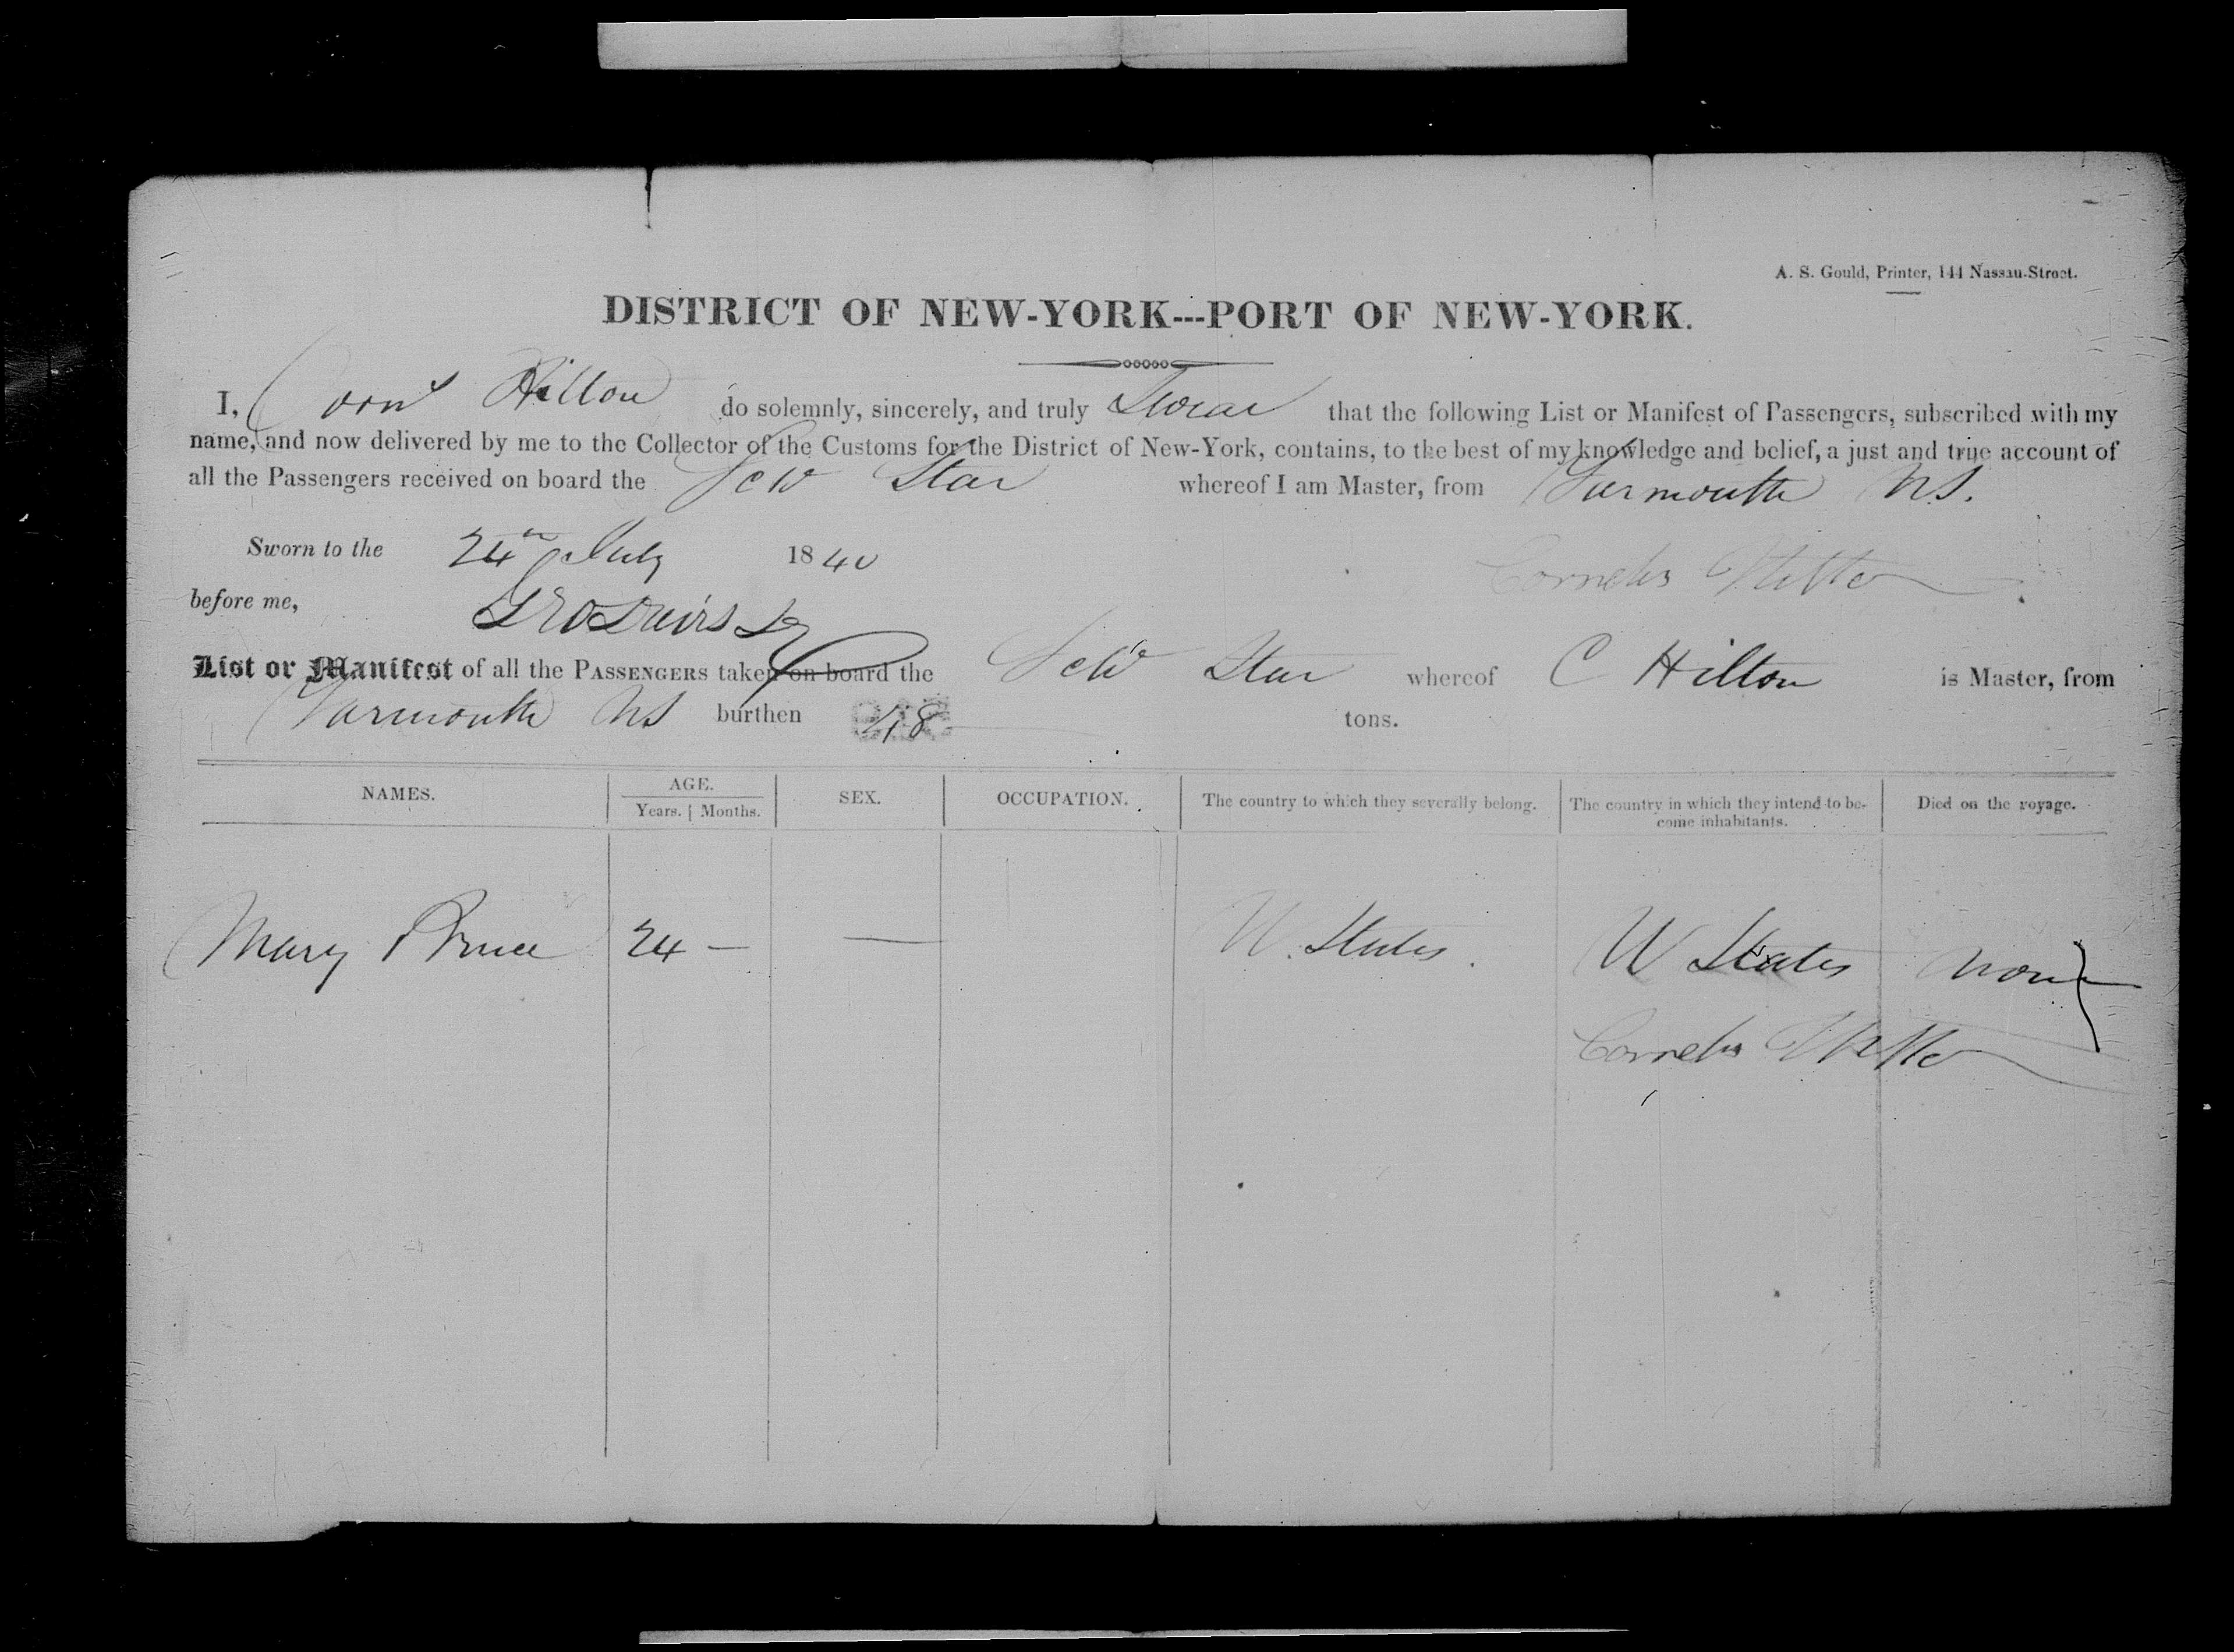 A. S. Gould, Printer, 144 Nassau-Street.
DISTRICT OF NEW-YORK---PORT OF NEW-YORK.
I, Corn^s Hilton do solemnly, sincerely, and truly Swear that the following List or Manifest of Passengers, subscribed with my
name, and now delivered by me to the Collector of the Customs for the District of New-York, contains, to the best of my knowledge and belief, a just and true account of
all the Passengers received on board the Schr Star whereof I am Master, from Yarmouth NS.
Sworn to the 24th July 1840
Cornelis Hilton
before me,
List or Manifest of all the PASSENGERS taken on board the Schr Star whereof C Hilton is Master, from
Yarmouth NS burthen 48 tons.
NAMES. AGE. SEX. OCCUPATION. The country to which they severally belong. The country in which they intend to be- Died on the voyage.
Years. Months. come inhabitants.
Mary Prince 24 — — U. States. U States None
Cornelis Hilton